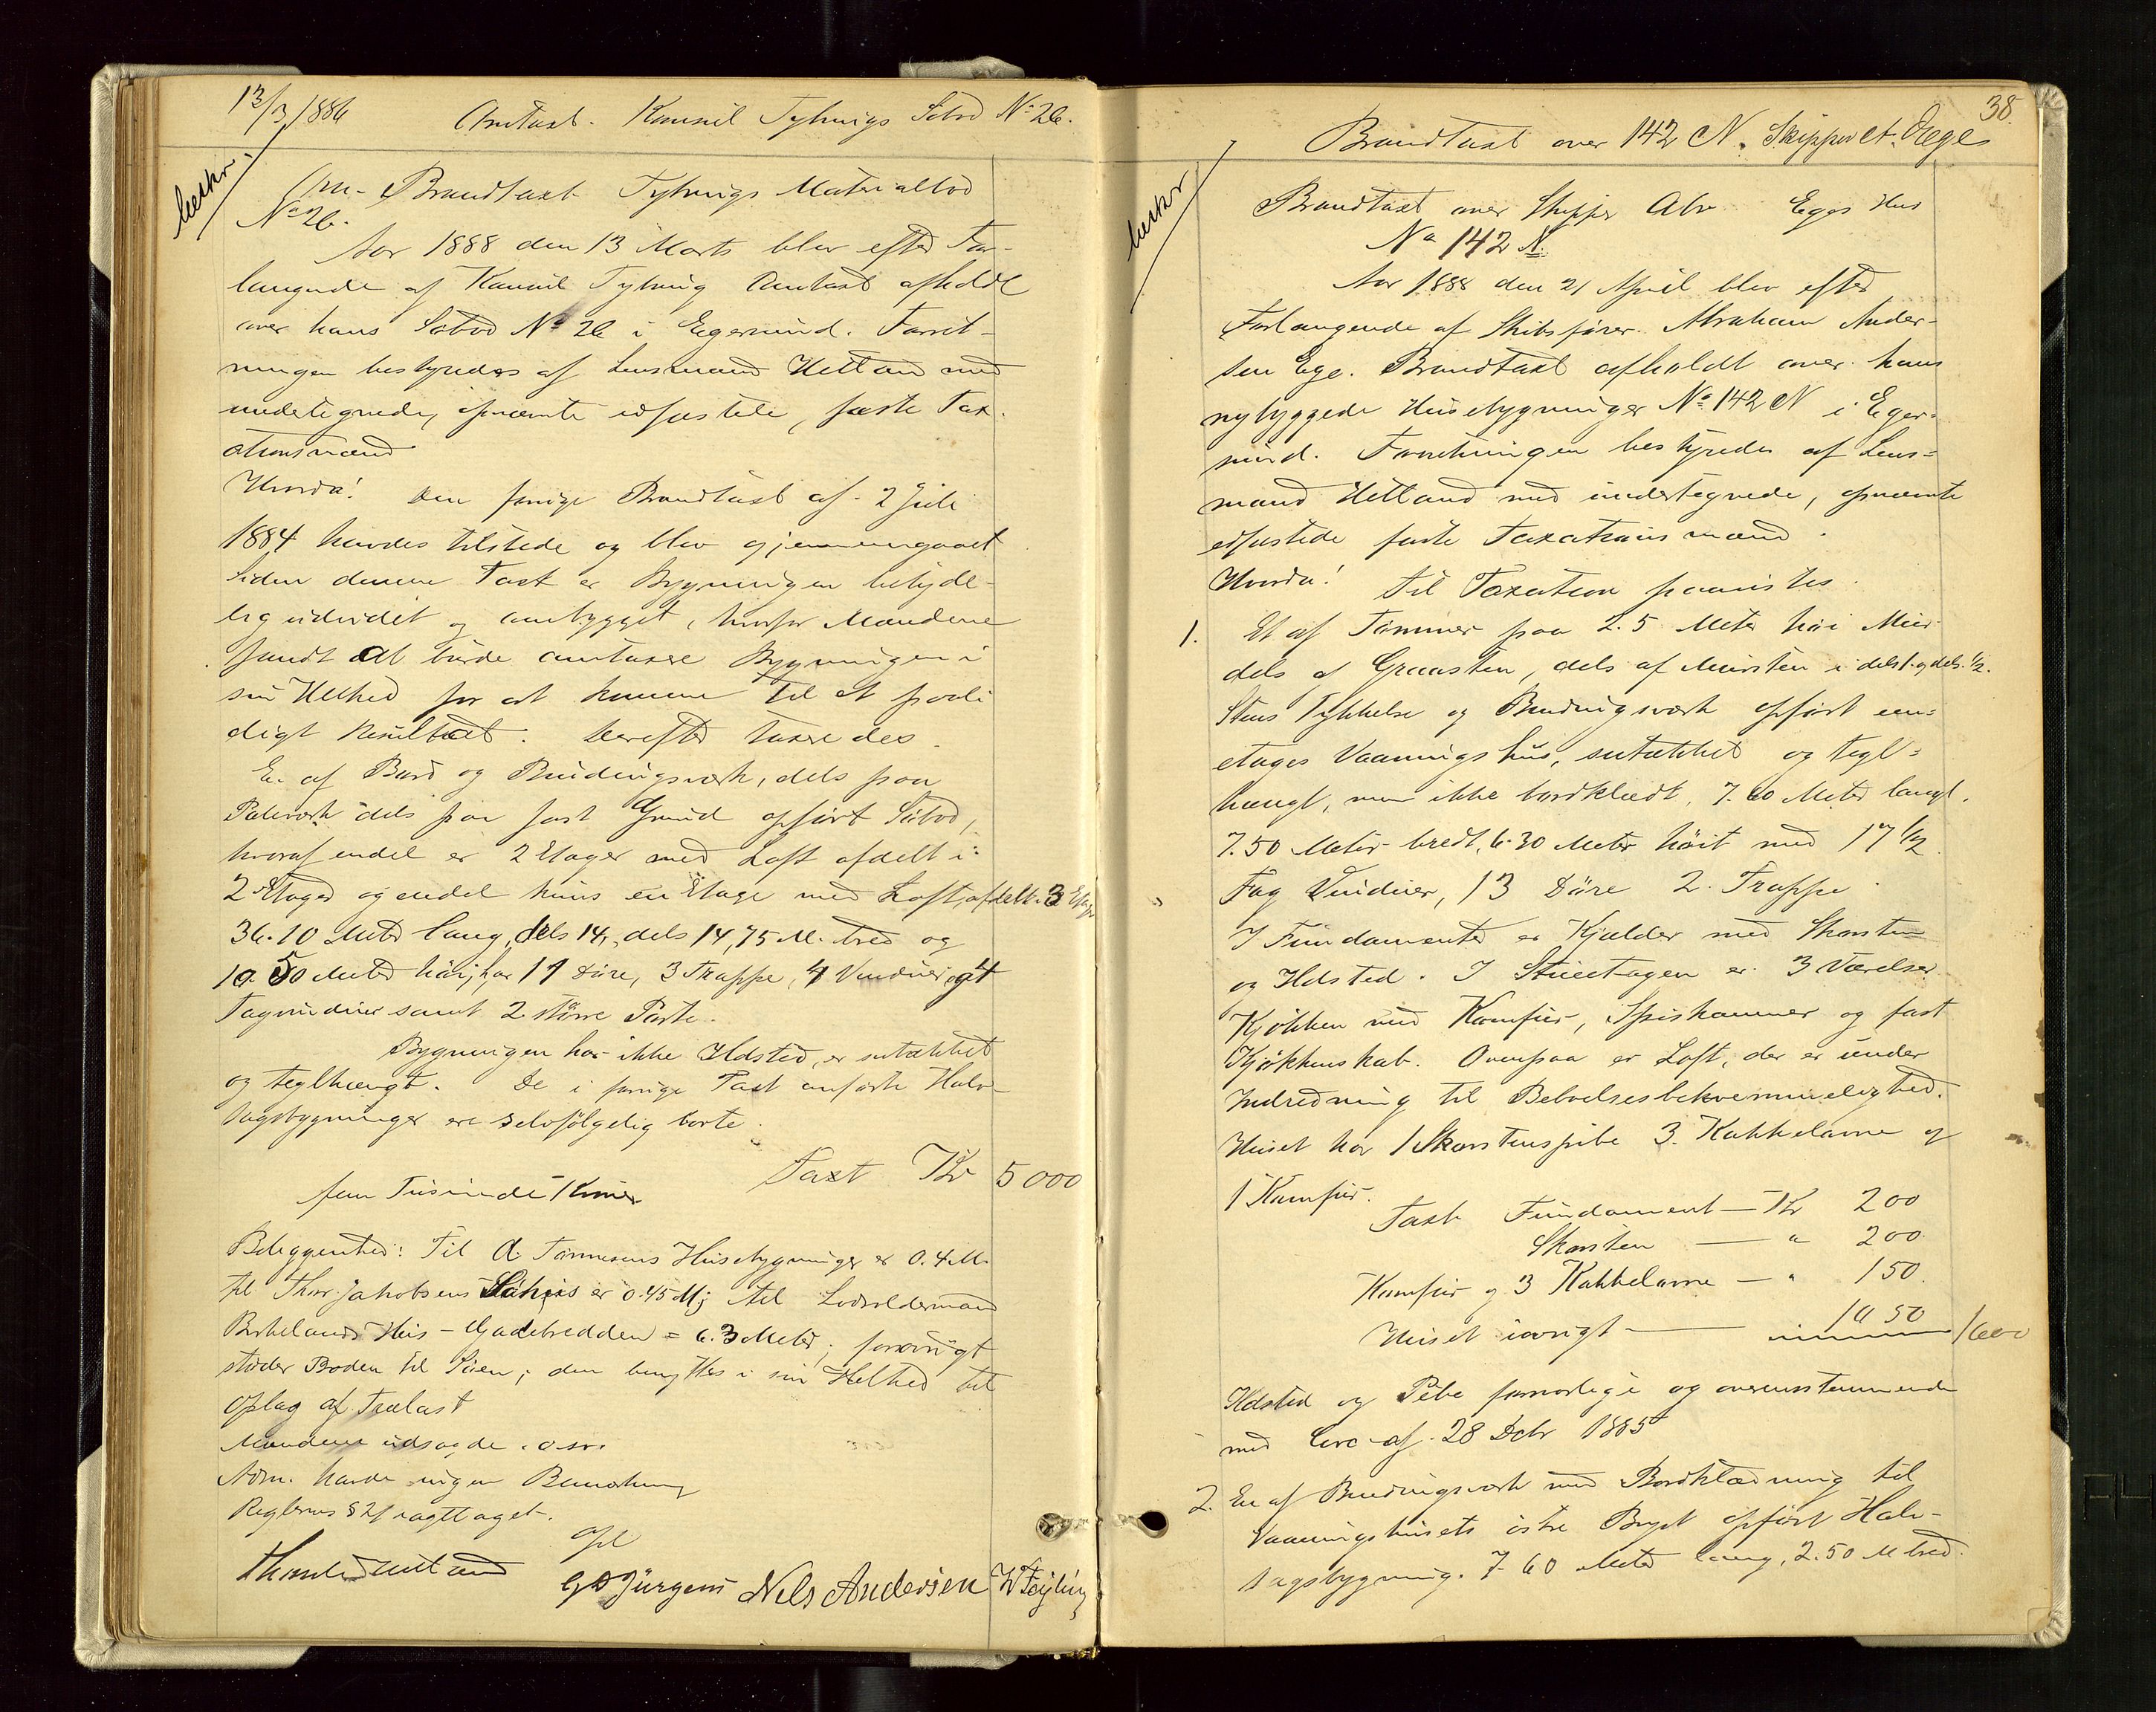 13/3 1886 Omtaxt. Konsul Tybrings Söbod No 26.
beskr.
Om- Brandtaxt Tybrings Materialbod
No 26.
Aar 1888 den 13 Marts blev efter For-
langende af Konsul Tybring Omtaxt afholdt
over hans Söbod No 26 i Egersund. Forret-
ningen bestyredes af Lensmand Hetland med
undertegnede, opnævnte edfæstede, faste Tax-
ationsmænd
Hvorda! Den forrige Brandtaxt af 2 Juli
1884 havdes tilstede og blev gjennemgaaet
Siden denne Taxt er Bygningen betyde-
lig udvidet og ombygget, hvorfor Mændene
fandt at burde omtaxere Bygningen i
sin Helhed for at komme til et paali-
deligt Resultat. Derefter taxeredes
En af Bord og Bindingsværk, dels paa
Pæleværk dels paa fast Grund opfört Söbod,
hvoraf endel er 2 Etager med Loft afdelt i
2 Etager og endel kuns en Etage med Loft, afdelt i 3 Etager
36.10 Meter lang, dels 14, dels 14,75 M. bred og
10.50 Meter höi, har 11 Döre, 3 Trappe, 4 Vinduer og 4
Tagvinduer samt 2 större Porte.
Bygningen har ikke Ildsted, er sutækket
og teglhængt. De i forrige Taxt anförte Halv-
tagsbygninger ere selvfölgelig borte.
Taxt Kr 5000
fem Tusinde Kroner
Beliggenhed: Til A. Tönnesens Husebygninger er 0.4 M.
til Thor Jakobsens Söhus er 0.45 M; til Lodsoldermand
Birkelands Hus - Gadebredden = 6.3 Meter; forövrigt
støder Boden til Söen; den benyttes i sin Helhed til
Oplag af Trælast
Mændene udsagde . o. sv.
Adm. havde ingen Bemærkning
Reglernes § 21 iagttaget.
Opl
Thomled Hetland G D Jürgens Nels Andersen W Feyling
38.
Brandtaxt over 142 N. Skipper A. Eges
beskr.
Brandtaxt over Skipper Abr. Eges Hus
No 142 N.
Aar 1888 den 21 April blev efter
Forlangende af Skibsförer Abraham Ander-
sen Ege. Brandtaxt afholdt over hans
nybyggede Husebygninger No 142 N i Eger-
sund. Forretningen bestyredes af Lens-
mand Hetland med undertegnede, opnævnte
edfæstede faste Taxationsmænd.
Hvorda! Til Taxation paavistes
1. Et af Tömmer paa 2.5 Meter höi Mur
dels af Graasten, dels af Mursten i dels 1. og dels 1/2.
Stens Tykkelse og Bindingsværk opfört een-
etages Vaaningshus, sutækket og tegl-
hængt, men ikke bordklædt, 7.60 Meter langt,
7.50 Meter bredt, 6.30 Meter höit med 17 1/2
Fag Vinduer, 13 Döre 2. Trappe
I Fundamentet er Kjælder med Skorsten
og Ildsted. I Stueetagen er 3 Værelser
Kjökken med Komfur, Spiskammer og fast
Kjökkenskab. Ovenpaa er Loft, der er under
Indredning til Beboelsesbekvemmelighed.
Huset har 1 Skorstenspibe 3. Kakkelovne og
1 Komfur.
Taxt Fundament — Kr 200
Skorsten — " 200
Komfur og 3 Kakkelovne — " 150
Huset iövrigt — 1050 1600
Ildsted og Pibe forsvarlige og overensstemmende
med Circ. af 28 Dcbr 1885
2. En af Bindingsværk med Bordklædning til
Vaaningshusets östre Bryst opfört Halv-
tagsbygning. 7.60 Meter lang, 2.50 M bred.